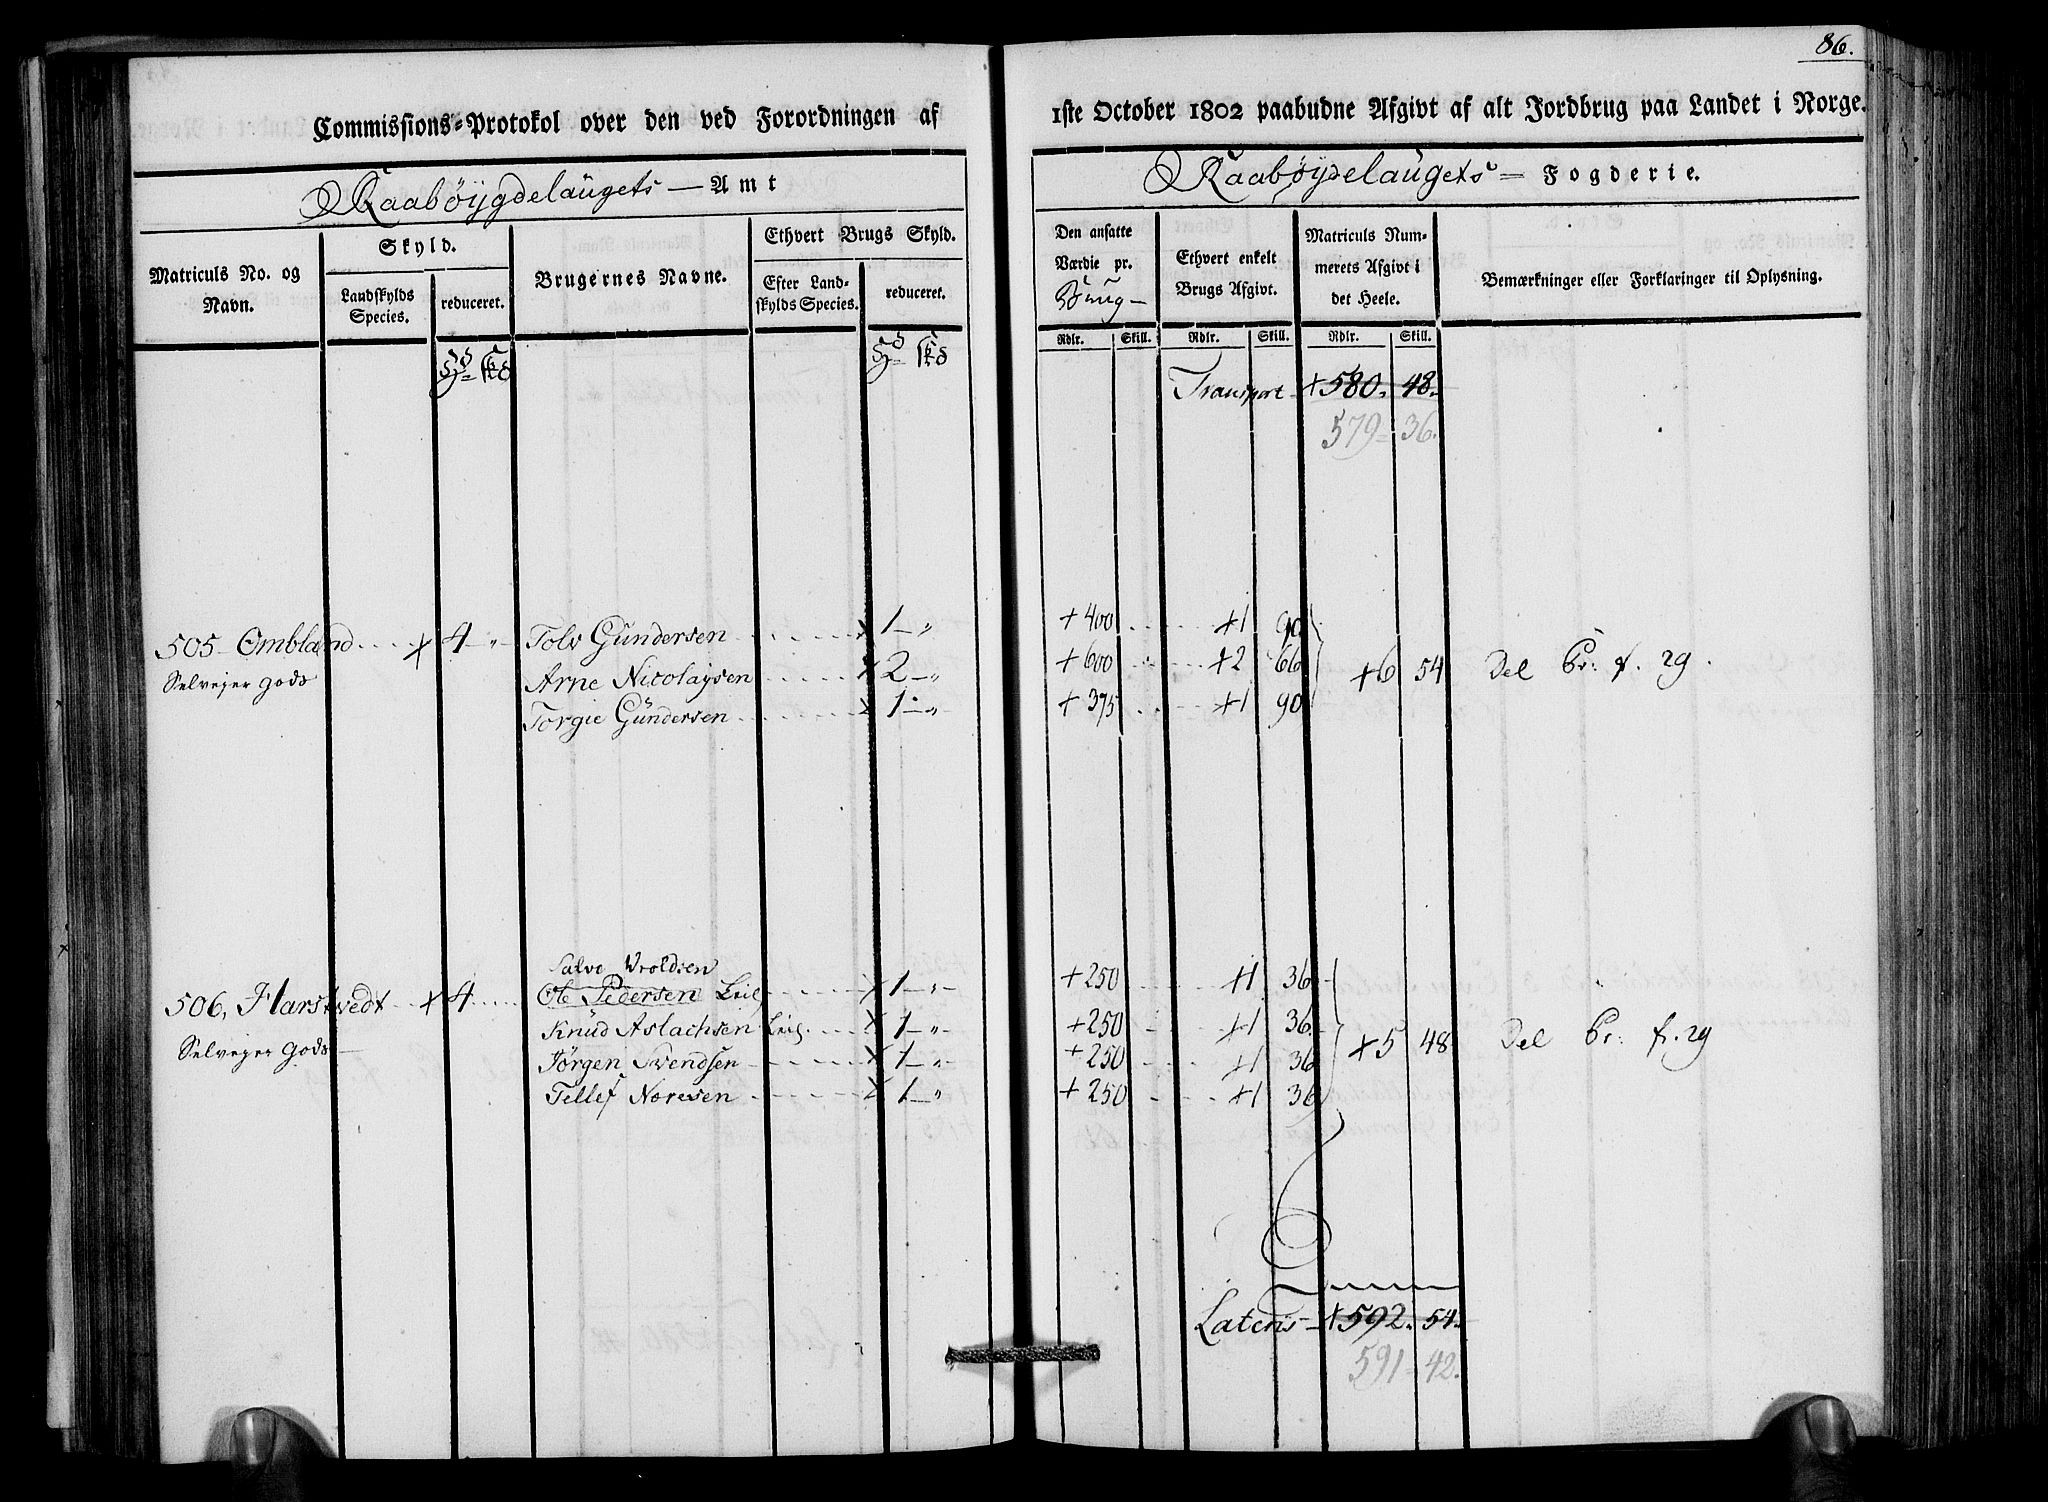 86.
Commissions=Protokol over den ved Forordningen af 1ste October 1802 paabudne Afgivt af alt Jordbrug paa Landet i Norge.
Raabøÿgdelaugets — Amt
Raabøÿdelaugets = Fogderie.
Matriculs No. og Navn.
Skyld.
Landskylds Species.
reduceret.
Brugernes Navne.
Ethvert Brugs Skyld.
Efter Landskylds Species.
reduceret.
Den ansatte Værdie pr. Brug
Ethvert enkelt Brugs Afgivt.
Matriculs Nummerets Afgivt i det Heele.
Bemærkninger eller Forklaringer til Oplysning.
Rdlr. Skill. Rdlr. Skill. Rdlr. Skill.
Transport + 580. 48.
579 = 36.
505 Ombland + 4 „ Tolv Gundersen × 1 „ + 400 +1 90
Selveÿer gods Arne Nicolaÿsen × 2 „ + 600 +2 66 +6 54 Del Pr: f. 29.
Torgie Gundersen × 1 „ + 375 +1 90
Salve Vroldsen
506, Harstvedt + 4 Ole Pedersen Leil × 1 „ +250 +1 36
Knud Aslachsen Leil. × 1 „ +250 +1 36
Selveÿer Gods Jørgen Svendsen × 1 „ +250 +1 36 +5 48 Del Pr: f. 29
Tellef Noresen × 1 „ +250 +1 36
Latens + 592. 54.
591 = 42.